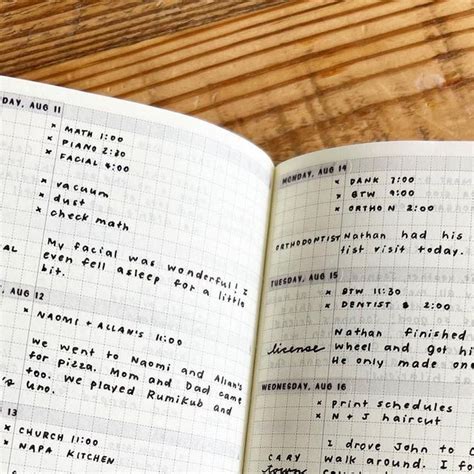 DAY, AUG 11
× MATH 1:00
× PIANO 2:30
× FACIAL 4:00
× vacuum
× dust
× check math
AL
My facial was wonderful! I
even fell asleep for a little
bit.
, AUG 12
× NAOMI + ALLAN'S 11:00
we went to Naomi and Allan's
for pizza. Mom and Dad came
too. We played Rumikub and
Uno.
13
× CHURCH 11:00
× NAPA KITCHEN
MONDAY, AUG 14
× DANK 7:00
× BTW 9:00
× ORTHO N 2:00
ORTHODONTIST
Nathan had his
tist visit today.
TUESDAY, AUG 15
× BTW 11:30
× DENTIST 2:00
license
Nathan finished
Wheel and got hi
He only made one
WEDNESDAY, AUG 16
× print schedules
× N + J haircut
CARY
town
I drove John to
walk around. I fo